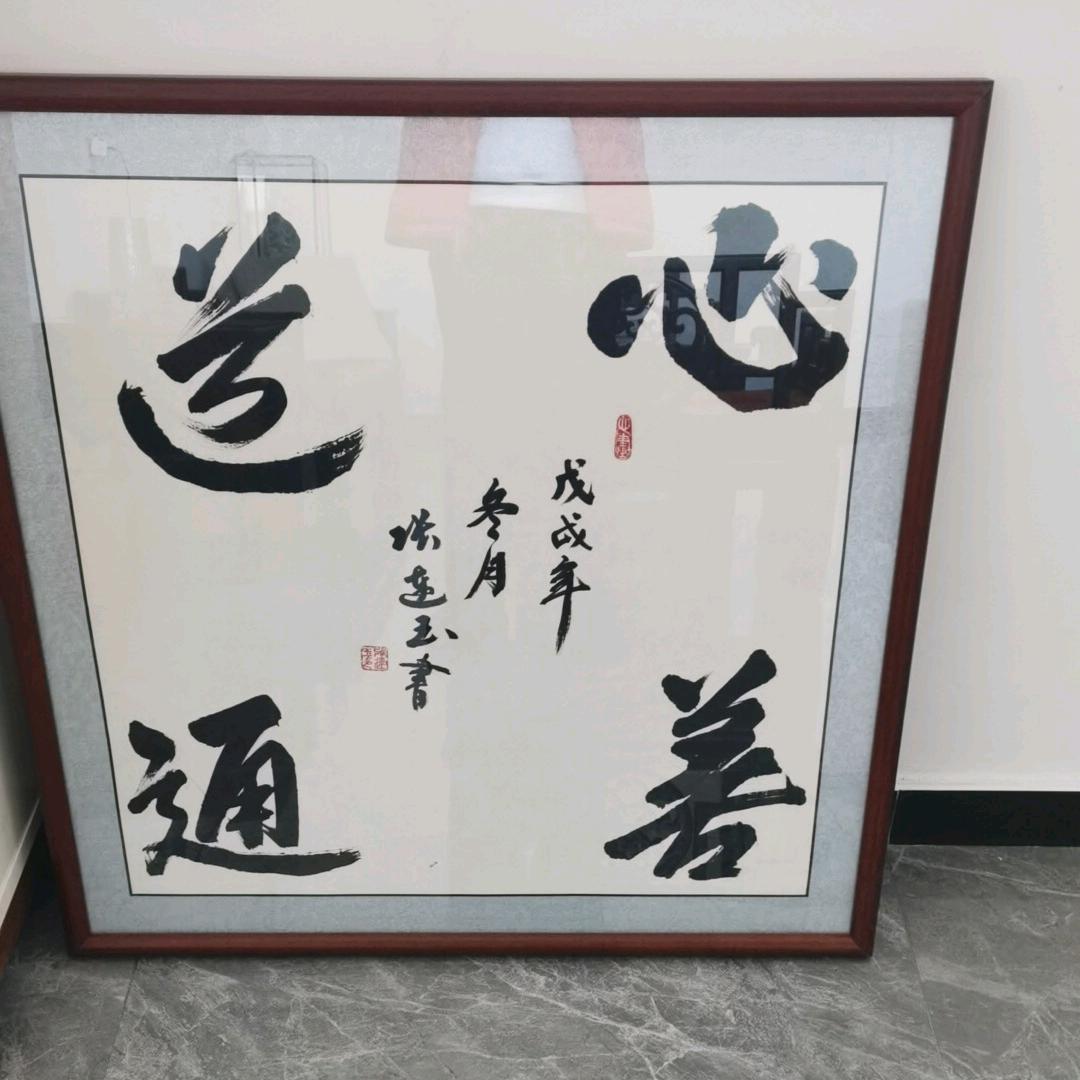 心善
道通
戊戌年
冬月
张連玉書